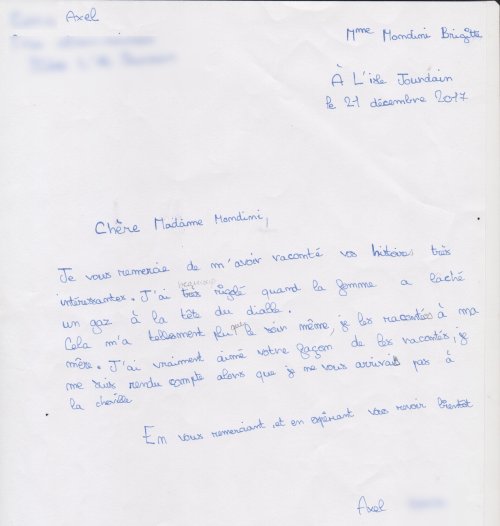 Axel
Mme Mondini Brigitte
À L'isle Jourdain
le 21 décembre 2017
Chère Madame Mondimi,
Je vous remercie de m'avoir raconté vos histoires très
beaucoup
intéressantes. J'ai très rigolé quand la femme a laché
un gaz à la tête du diable.
Cela m'a tellement plu que le soir même, je les racontées à ma
mère. J'ai vraiment aimé votre façon de les racontés, je
me suis rendu compte alors que je ne vous arrivais pas à
la cheville
En vous remerciant, et en espérant vous revoir bientôt
Axel